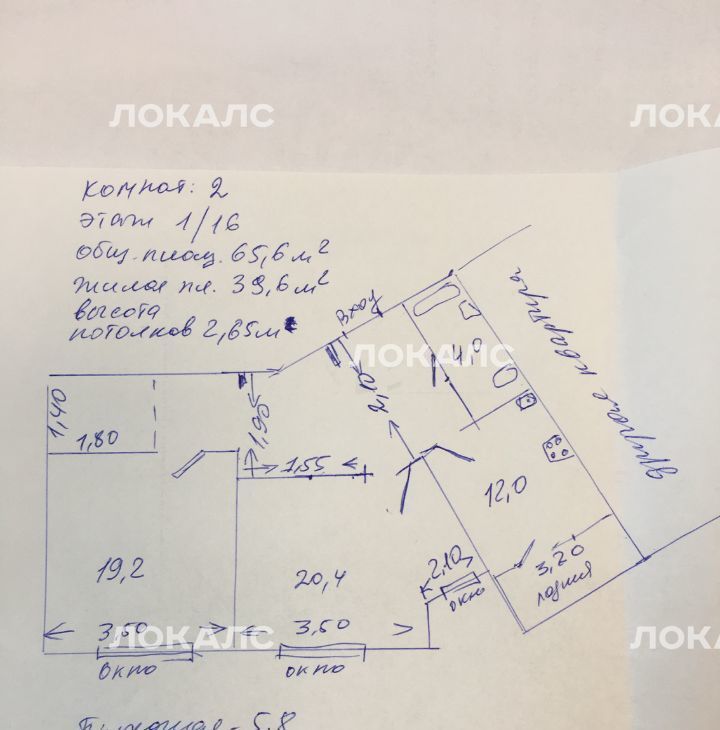 ЛОКАЛС
ЛОКАЛС
комнат: 2
этаж 1/16
общ. площ. 65,6 м²
жилая пл. 39,6 м²
высота
потолков 2,65 м
вход
другая квартира
ЛОКАЛС
4,0
1,40
1,80
1,90
1,55
12,0
19,2
20,4
2,10
3,20
лоджия
окно
3,50
3,50
ЛОКАЛС
ЛОКАЛС
ЛОКАЛС
окно
окно
5,8